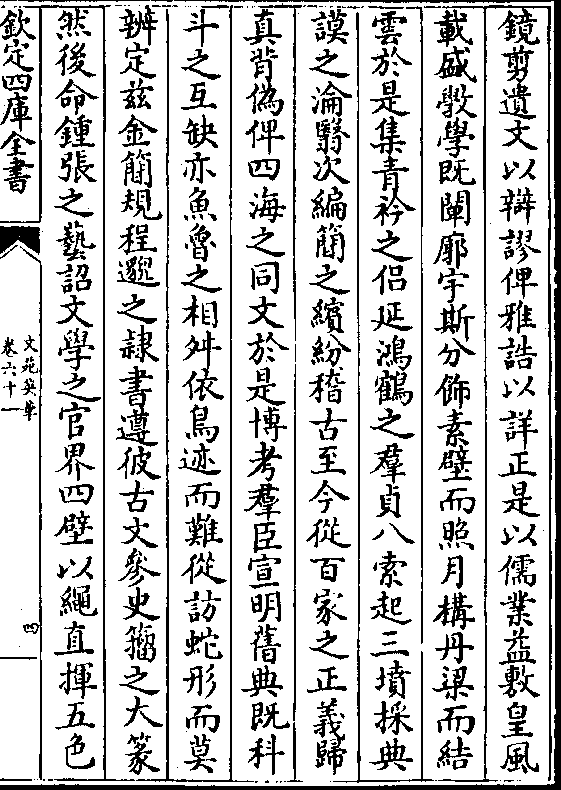 鏡剪遺文以辯謬俾雅誥以詳正是以儒業益敷皇風
載盛斆學既闡廓宇斯分飾素壁而照月構丹梁而結
雲於是集青衿之侣延鴻鶴之羣貞八索起三墳採典
謨之淪翳次編簡之繽紛稽古至今從百家之正義歸
真背偽俾四海之同文於是博考羣臣宣明舊典既科
斗之互缺亦魚魯之相舛依鳥迹而難從訪蛇形而莫
辨定兹金簡規程邈之隷書遵彼古文參史籀之大篆
然後命鍾張之藝詔文學之官界四壁以繩直揮五色
欽定四庫全書
文苑英華
卷六十一
四